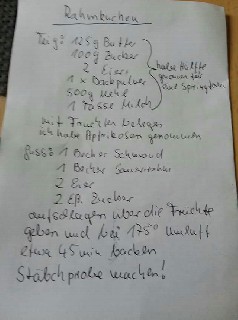 Rahmkuchen
Teig: 125g Butter
100g Zucker
2 Eier
1 x Backpulver
500g Mehl
1 Tasse Milch
habe Hälfte
genommen für
eine Springform
mit Früchten belegen
ich habe Apfrikosen genommen
Guss: 1 Becher Schmand
1 Becher Sauerrahm
2 Eier
2 Eßl. Zucker
aufschlagen über die Früchte
geben und bei 175° Umluft
etwa 45 min backen
Stäbchprobe machen!